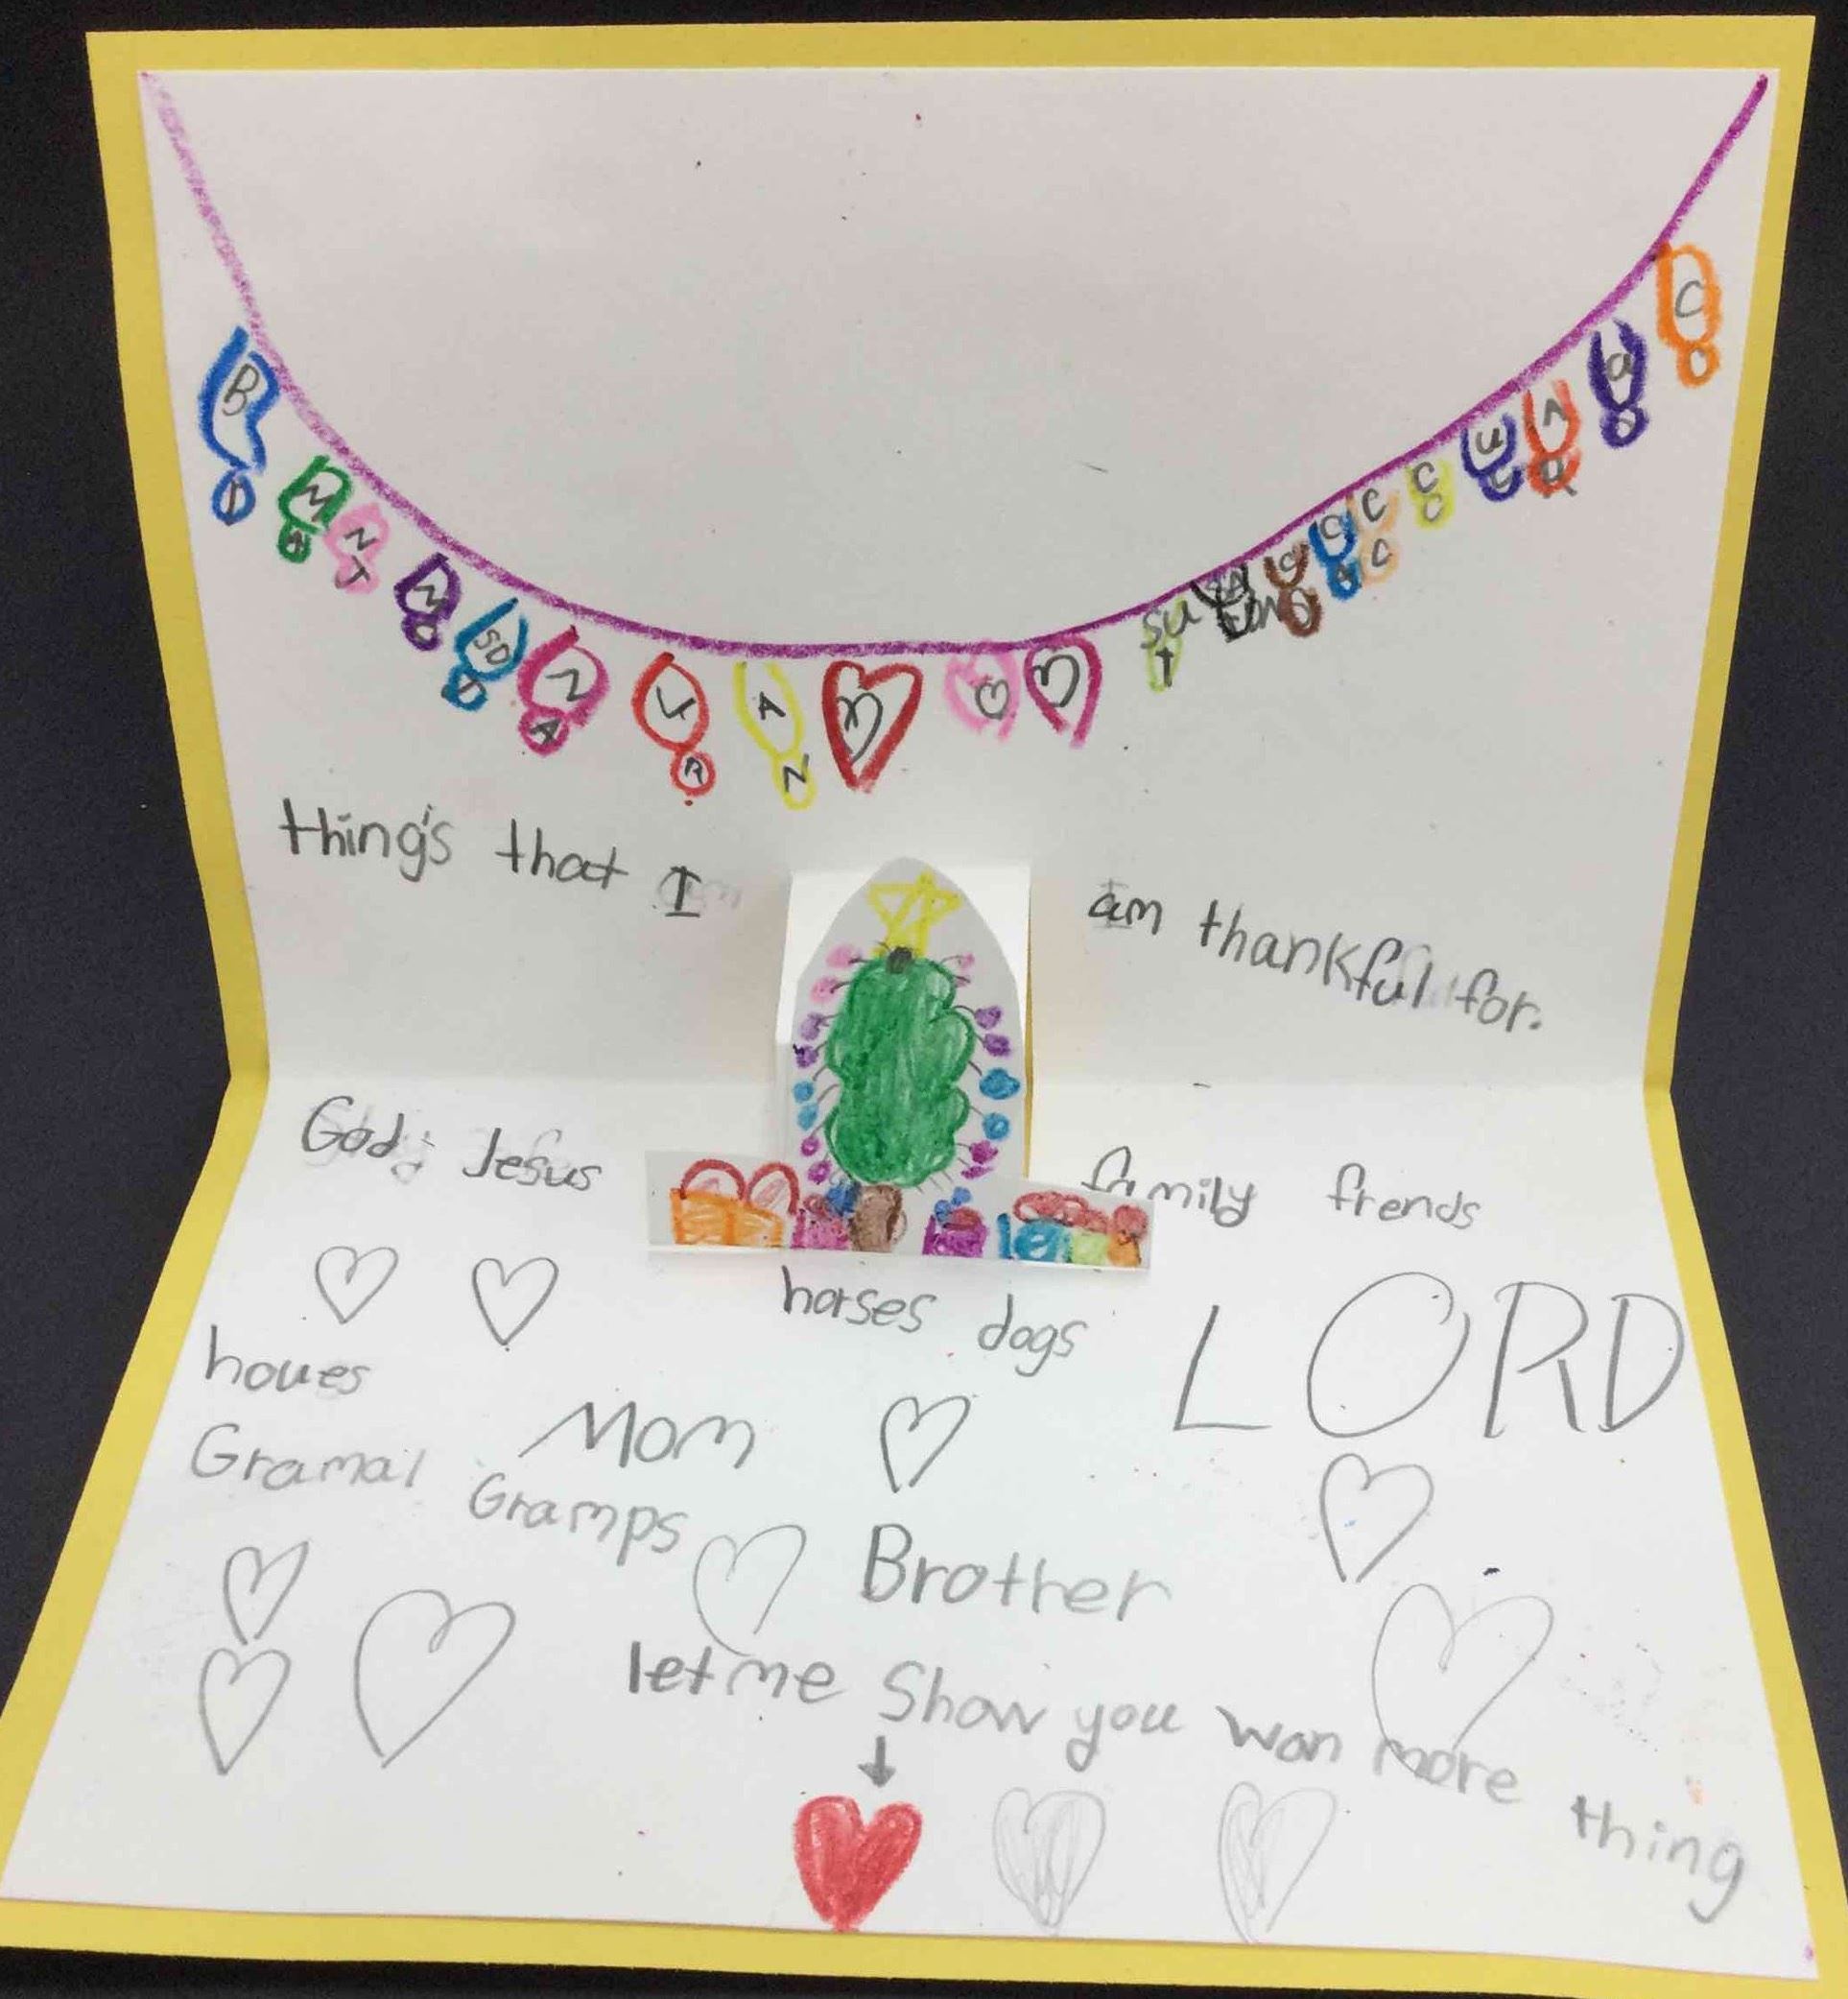 B M N M SD N Y A SU C C C U A a C
thing's that I am thankful for.
God, Jesus family frends
horses dogs
LORD
houes
Mom
Gramal
Gramps
Brother
let me Show you won more thing